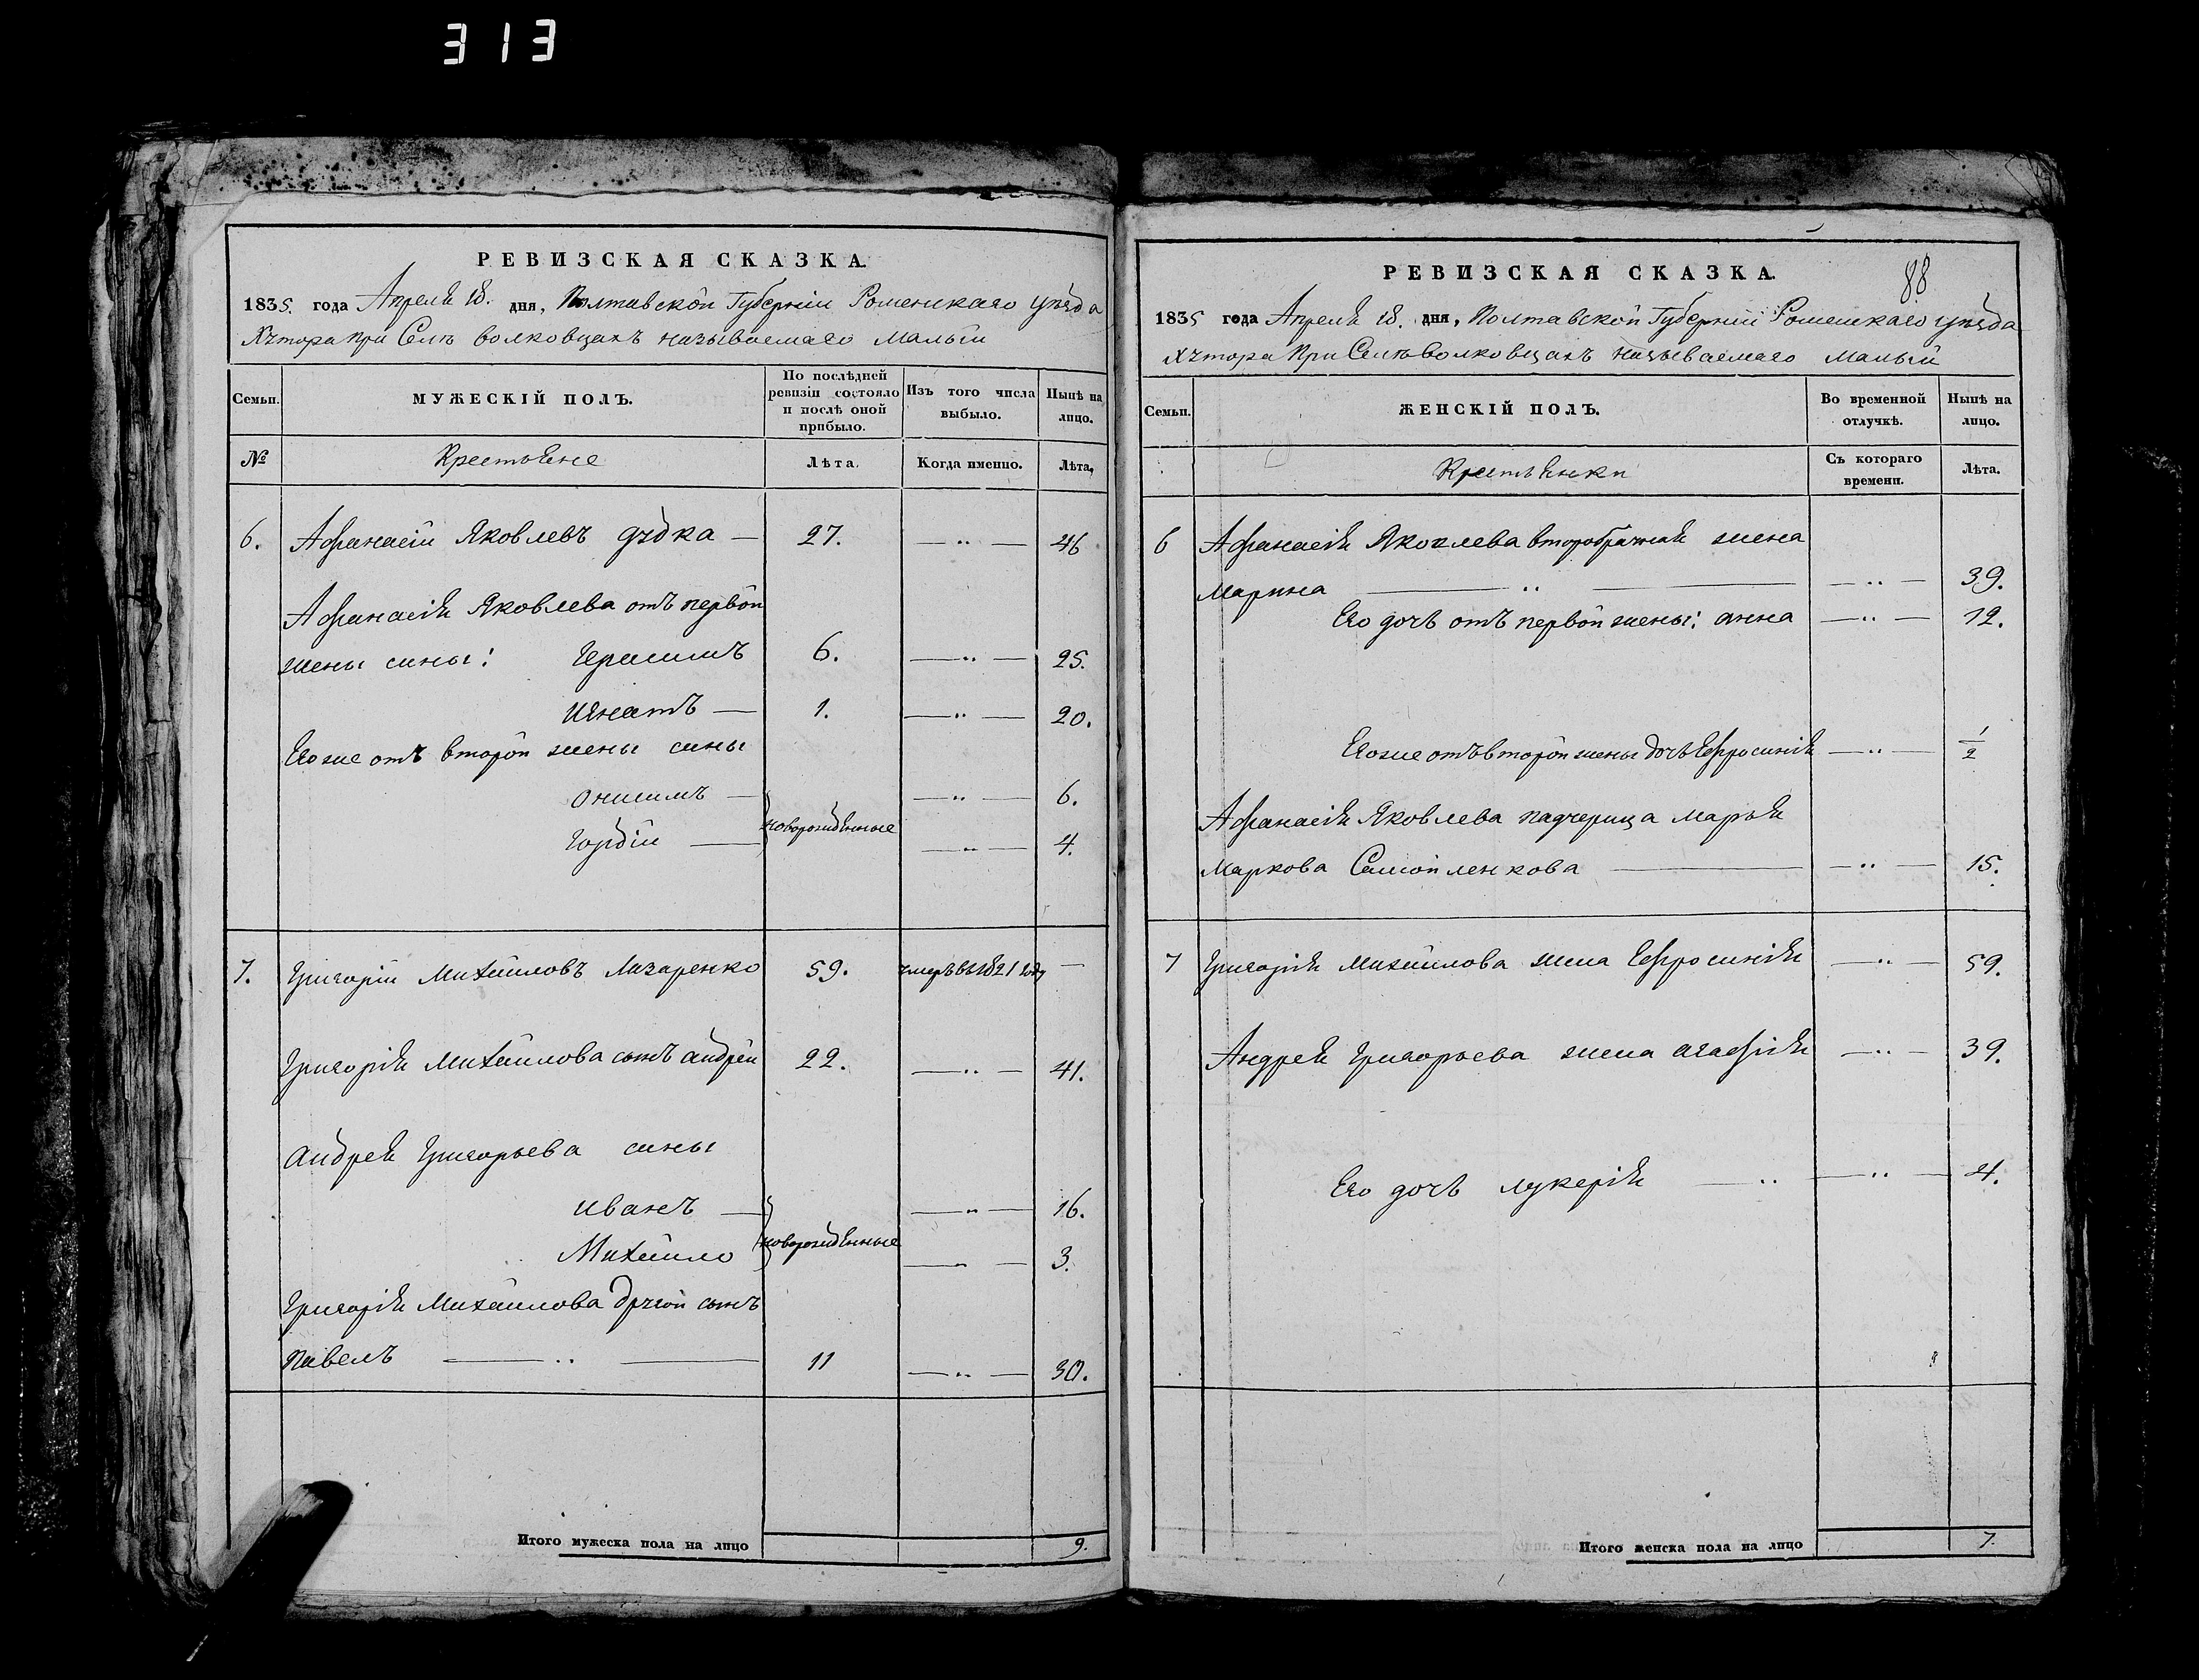 313
РЕВИЗСКАЯ СКАЗКА.
1835. года Апреля 18. дня, Полтавской Губерніи Роменскаго уѣзда
Хутора при Селѣ волковцахъ называемаго Малыи
Семьи. МУЖЕСКІЙ ПОЛЪ. По послѣдней ревизіи состояло и послѣ оной прибыло. Изъ того числа выбыло. Нынѣ на лицо.
№ Крестьяне Лѣта. Когда именно. Лѣта.
6. Афанасій Яковлевъ дудка — 27. — " — 46
Афанасія Яковлева отъ первой
жены сины: Герасимъ 6. — " — 25.
Игнатъ — 1. — " — 20.
Его же отъ второй жены сины
онисимъ — новорожденные — " — 6.
Гордій — — " — 4.
7. Григорій Михайловъ Лазаренко 59. умеръ въ 1821 году —
Григорія Михайлова сынъ андрей 22. — " — 41.
андрея Григорьева сины
иванъ — новорожденные — " — 16.
Михайло — " — 3.
Григорія Михайлова другой сынъ
павелъ — " — 11 — " — 30.
Итого мужеска пола на лицо 9.
88
РЕВИЗСКАЯ СКАЗКА.
1835 года Апреля 18. дня, Полтавской Губерніи Роменскаго уѣзда
Хутора при Селѣ волковцахъ называемаго малый
Семьи. ЖЕНСКІЙ ПОЛЪ. Во временной отлучкѣ. Нынѣ на лицо.
Крестьянки Съ котораго времени. Лѣта.
6 Афанасія Яковлева второбрачная жена
марина — " — — " — 39.
Его дочь отъ первой жены: анна — " — 12.
Его же отъ второй жены дочь Ефросинія — " — 1/2
Афанасія Яковлева падчерица марья
маркова Самойленкова — — " — 15.
7 Григорія михайлова жена Ефросинія — " — 59.
Андрея Григорьева жена агафія — " — 39.
Его дочь лукерія — " — " — 4.
Итого женска пола на лицо 7.